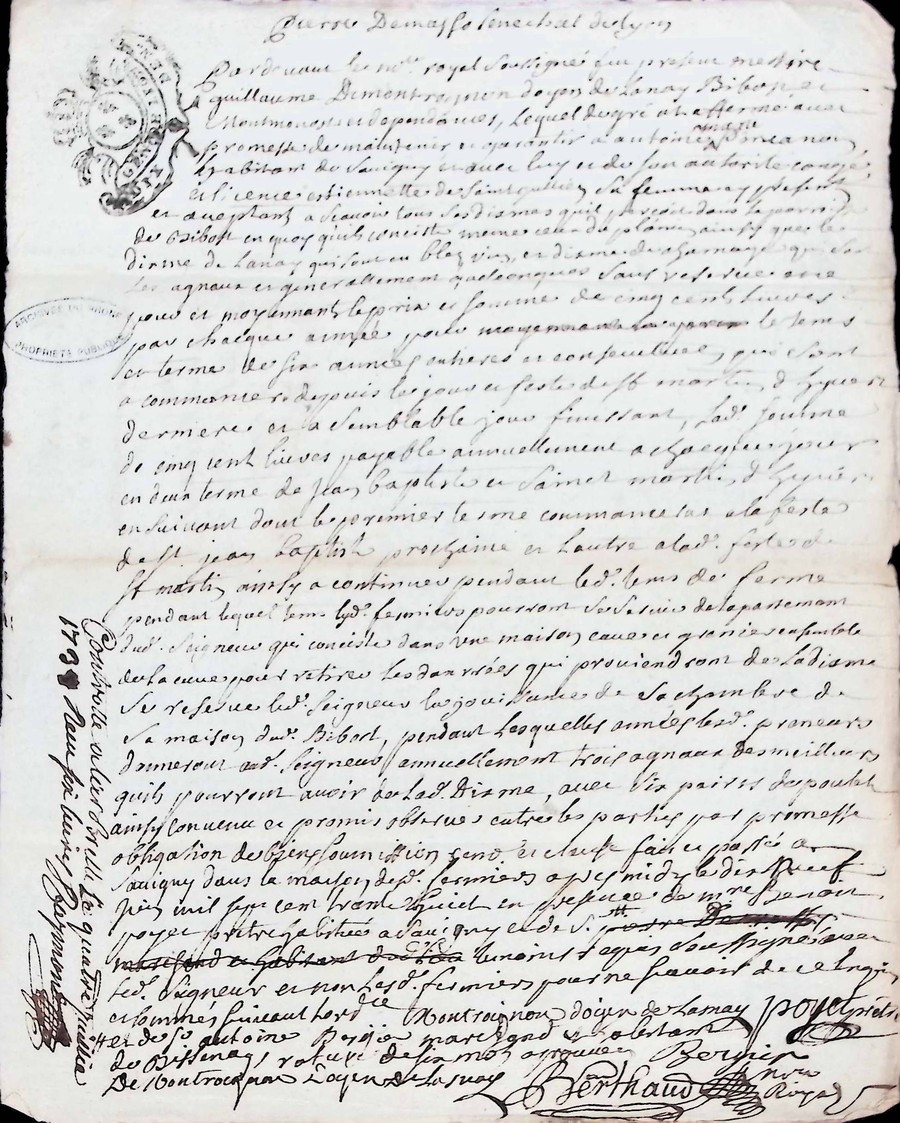 Pierre Demasso senechal de lyon
Pardevant le no.re royal soussigné fut present messire
guillaume Demontroignon doyen de Lanay Bibost et
Montmenost et dependances, Lequel de gré a Laffermé avec
promesse de maintenir et garantir a antoine
habitant de Savigny et avec luy et de son autorité congé
et licence estiennette de Saint sa femme cy presente
et aceptant a scavoir tous ses dismes quil perçoit dans la parroisse
de Bibost en quoy quils consiste meme ceux du plane ainsy que le
disme de Lanay qui sont en bled vin, et disme de charnage qui sont
Les agnaux et generallement quelconques sans reserve
pour et moyennant le prix et somme de cinq cent livres
par chacque année pour le tems
et terme de six années entieres et consecutives, qui sont
a commancer depuis le jour et feste de st martin d'hyver
dernier et a semblable jour finissant, Lad. somme
de cinq cent livres payable annuellement a chacque jour
en deux terme de jean baptiste et Saint martin d'hyver
en suivant dont le premier terme commancera a la feste
de St. jean baptiste prochaine et l'autre a lad. feste de
St martin ainsy a continuer pendant led. tems de ferme
pendant lequel tems lesd. fermiers pourront se servir de lapartement
dud. Seigneur qui consiste dans une maison cave et grenier ensemble
de la cuve pour retirer les danrées qui proviendront de la disme
Se reserve led. Seigneur la jouissance de sa chambre de
sa maison dud. Bibost, pendant lesquelles années lesd. preneurs
donneront aud. Seigneur annuellement trois agnaux des meilleurs
quils pourront avoir de lad. Disme, avec six paires de poulat
ainsy convenu et promis observer entre les parties par promesse
obligation de biens soumission renon. et clause fait et passé a
Savigny dans la maison desd. fermiers apres midy le dix neuf
juin mil sept cent trante huict en presence de mre Benoit
poyet pretre habitué a Savigny et de S.
marchand et habitant de temoins requis soussignés avec
led. Seigneur et non lesd. fermiers pour ne scavoir de ce enquis
et sommes suivant lord.ce Montroignon doyen de Lanay poyet pretre
et de Sr. antoine Bergier marchand et habitant
de Bessenay, rature de six mots aprouvée Bergier
De Montroignon Doyen de Lanay Berthaud no.re Royal
Controllé et a la Bresle Le quatre juillet
1738 Reçu six livres Raymond
ARCHIVES DU RHONE
PROPRIETE PUBLIQUE